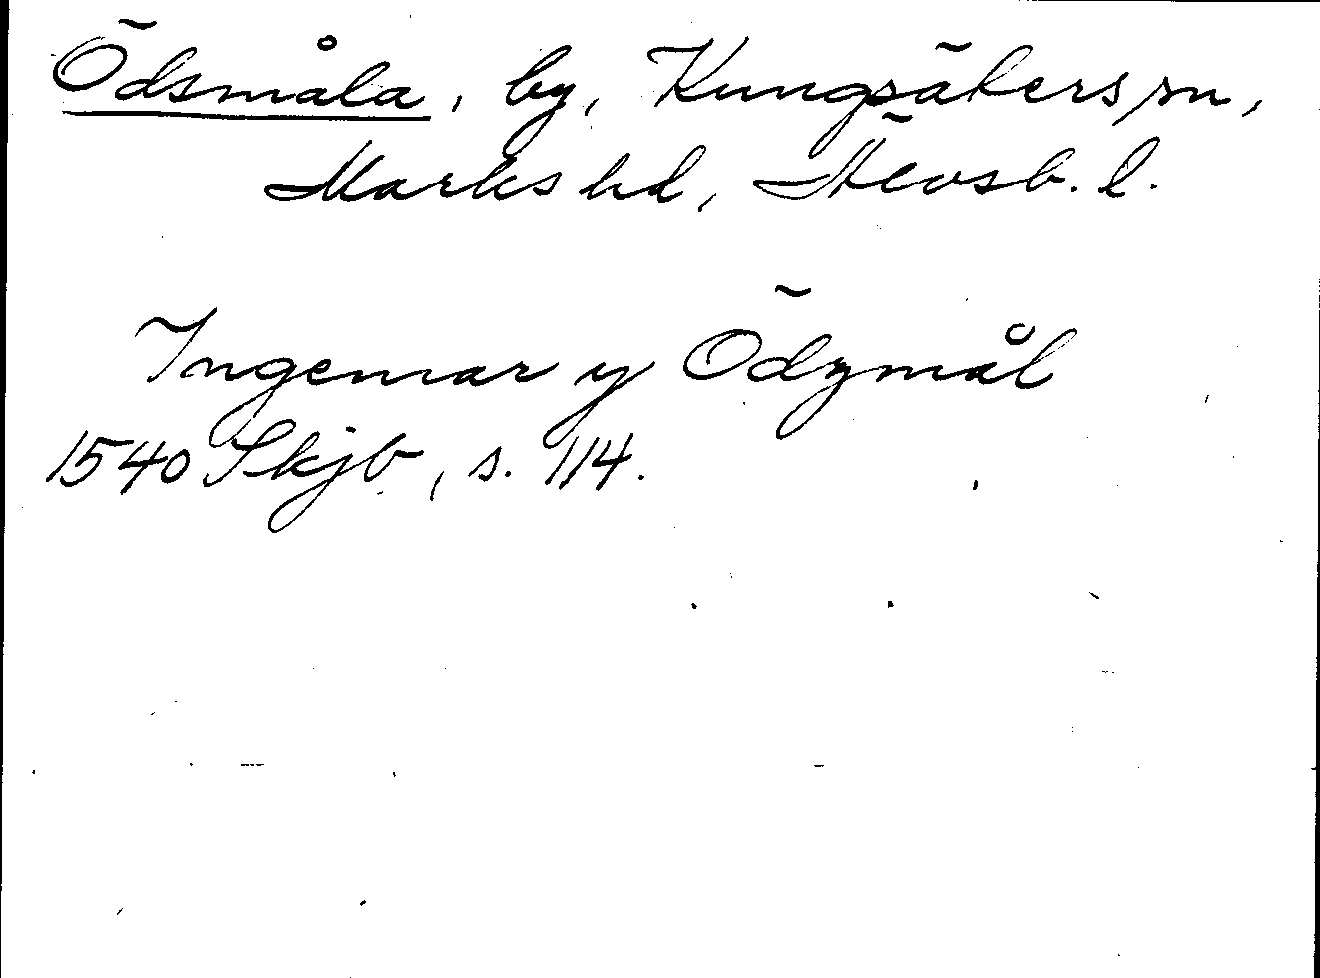 Ödsmåla, by, Kungsäkers sn,
Marks hd, Älvsb. l.
Ingemar y Ödzmål
1540 Skjb, s. 114.